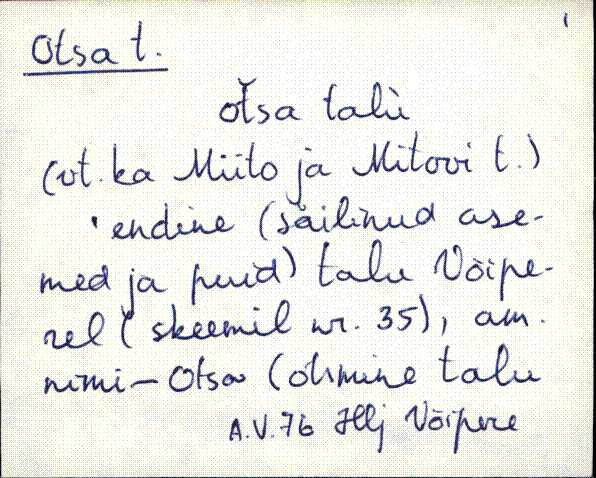 Otsa t.
otsa talu
(vt. ka Miito ja Mitovi t.)
endine (säilinud ase-
med ja puid) talu Võipe-
rel (skeemil nr. 35), am.
nimi - Otsa (otsmine talu
A.V.76 Hlj Võipere